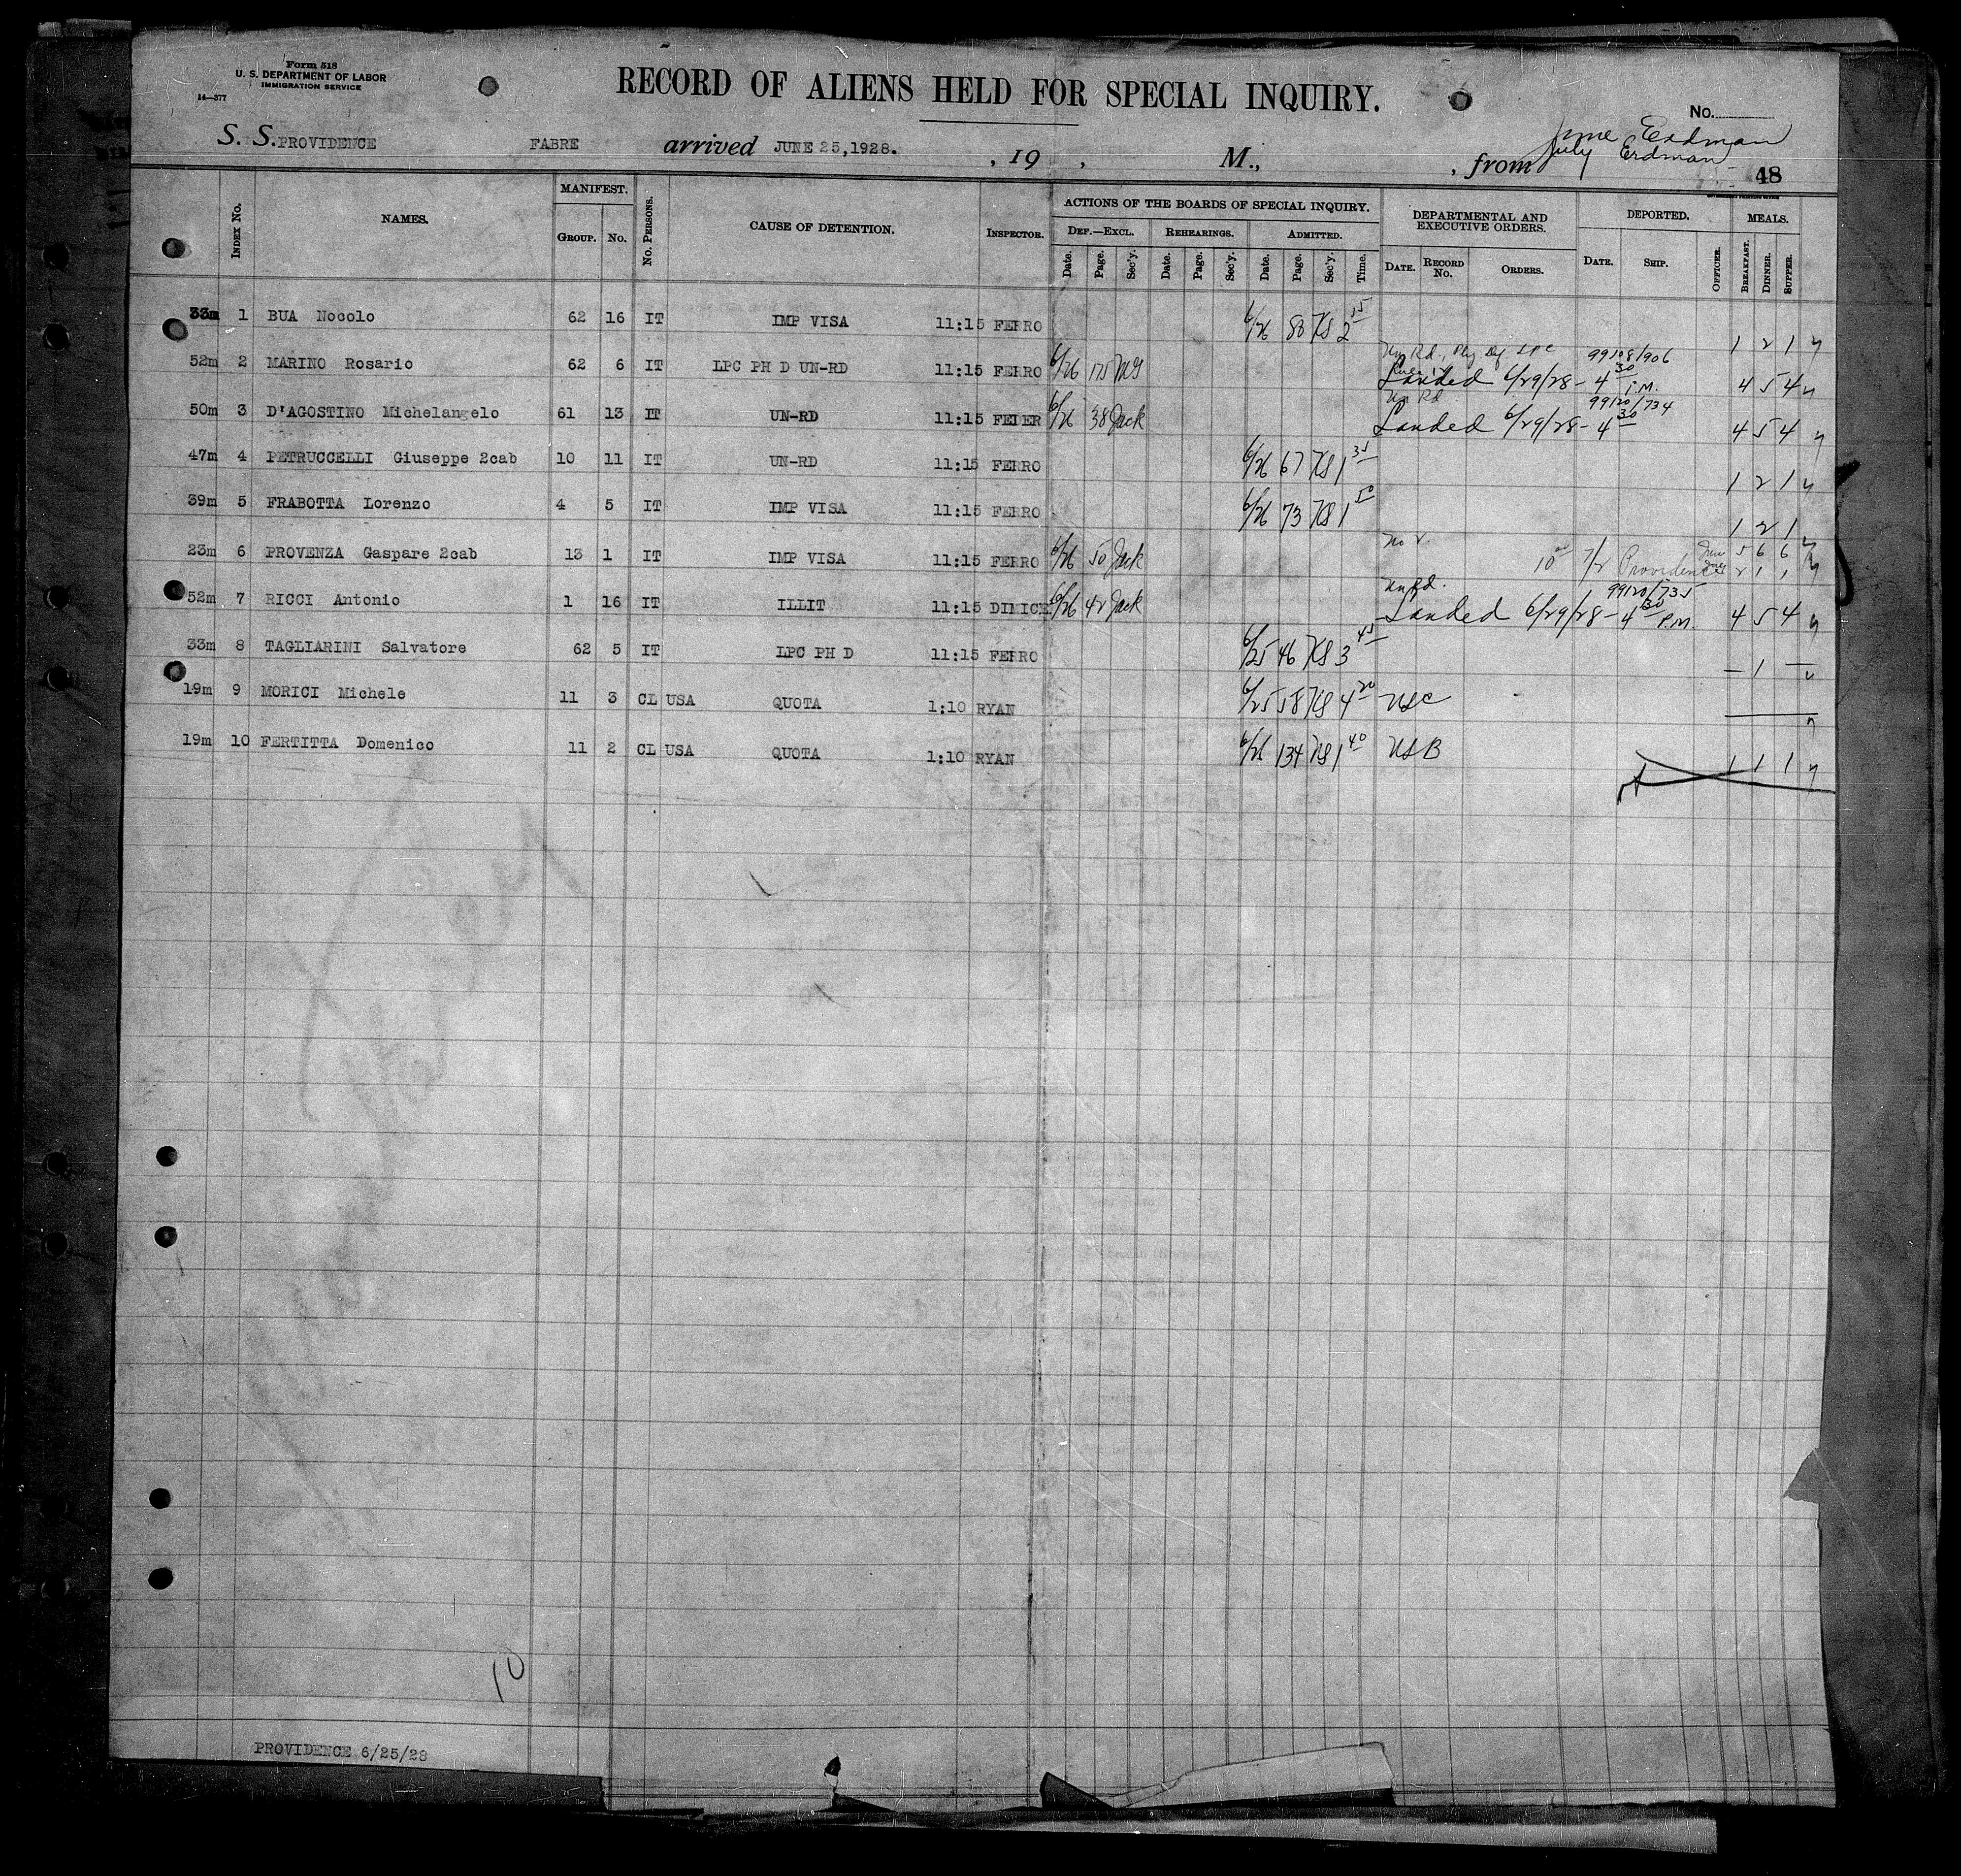 Form 518
U. S. DEPARTMENT OF LABOR
IMMIGRATION SERVICE
14—377
RECORD OF ALIENS HELD FOR SPECIAL INQUIRY.
No.
June Erdman
July Erdman
S. S. PROVIDENCE FABRE arrived JUNE 25, 1928. , 19 , M., , from
48
INDEX No. NAMES. MANIFEST. GROUP. No. No. PERSONS. CAUSE OF DETENTION. INSPECTOR.
ACTIONS OF THE BOARDS OF SPECIAL INQUIRY.
DEF.—EXCL. Date. Page. Sec'y. REHEARINGS. Date. Page. Sec'y. ADMITTED. Date. Page. Sec'y. Time.
DEPARTMENTAL AND EXECUTIVE ORDERS. DATE. RECORD No. ORDERS.
DEPORTED. DATE. SHIP. OFFICER.
MEALS. BREAKFAST. DINNER. SUPPER.
33m 1 BUA Nocolo 62 16 IT IMP VISA 11:15 FERRO 6/26 80 KS 2 15 1 2 1
52m 2 MARINO Rosario 62 6 IT LPC PH D UN-RD 11:15 FERRO 6/26 175 99108/906
Landed 6/29/28 - 4 30 P.M. 4 5 4
50m 3 D'AGOSTINO Michelangelo 61 13 IT UN-RD 11:15 FEDER 6/26 38 Jack Un Rd 99120/734
Landed 6/29/28 - 4 30 4 5 4
47m 4 PETRUCCELLI Giuseppe 2cab 10 11 IT UN-RD 11:15 FERRO 6/26 67 KS 1 35 1 2 1
39m 5 FRABOTTA Lorenzo 4 5 IT IMP VISA 11:15 FERRO 6/26 73 KS 1 50 1 2 1
23m 6 PROVENZA Gaspare 2cab 13 1 IT IMP VISA 11:15 FERRO 6/26 50 Jack No V. 10 00 7/2 Providence June 5 6 6
July 2 1 1
52m 7 RICCI Antonio 1 16 IT ILLIT 11:15 DIMICE 6/26 42 Jack Un Rd. 99120/735
Landed 6/29/28 - 4 30 P.M. 4 5 4
33m 8 TAGLIARINI Salvatore 62 5 IT LPC PH D 11:15 FERRO 6/25 46 KS 3 45 — 1 —
19m 9 MORICI Michele 11 3 CL USA QUOTA 1:10 RYAN 6/25 58 KS 4 20 USC
19m 10 FERTITTA Domenico 11 2 CL USA QUOTA 1:10 RYAN 6/26 134 KS 1 40 USB 1 1 1
10
PROVIDENCE 6/25/28